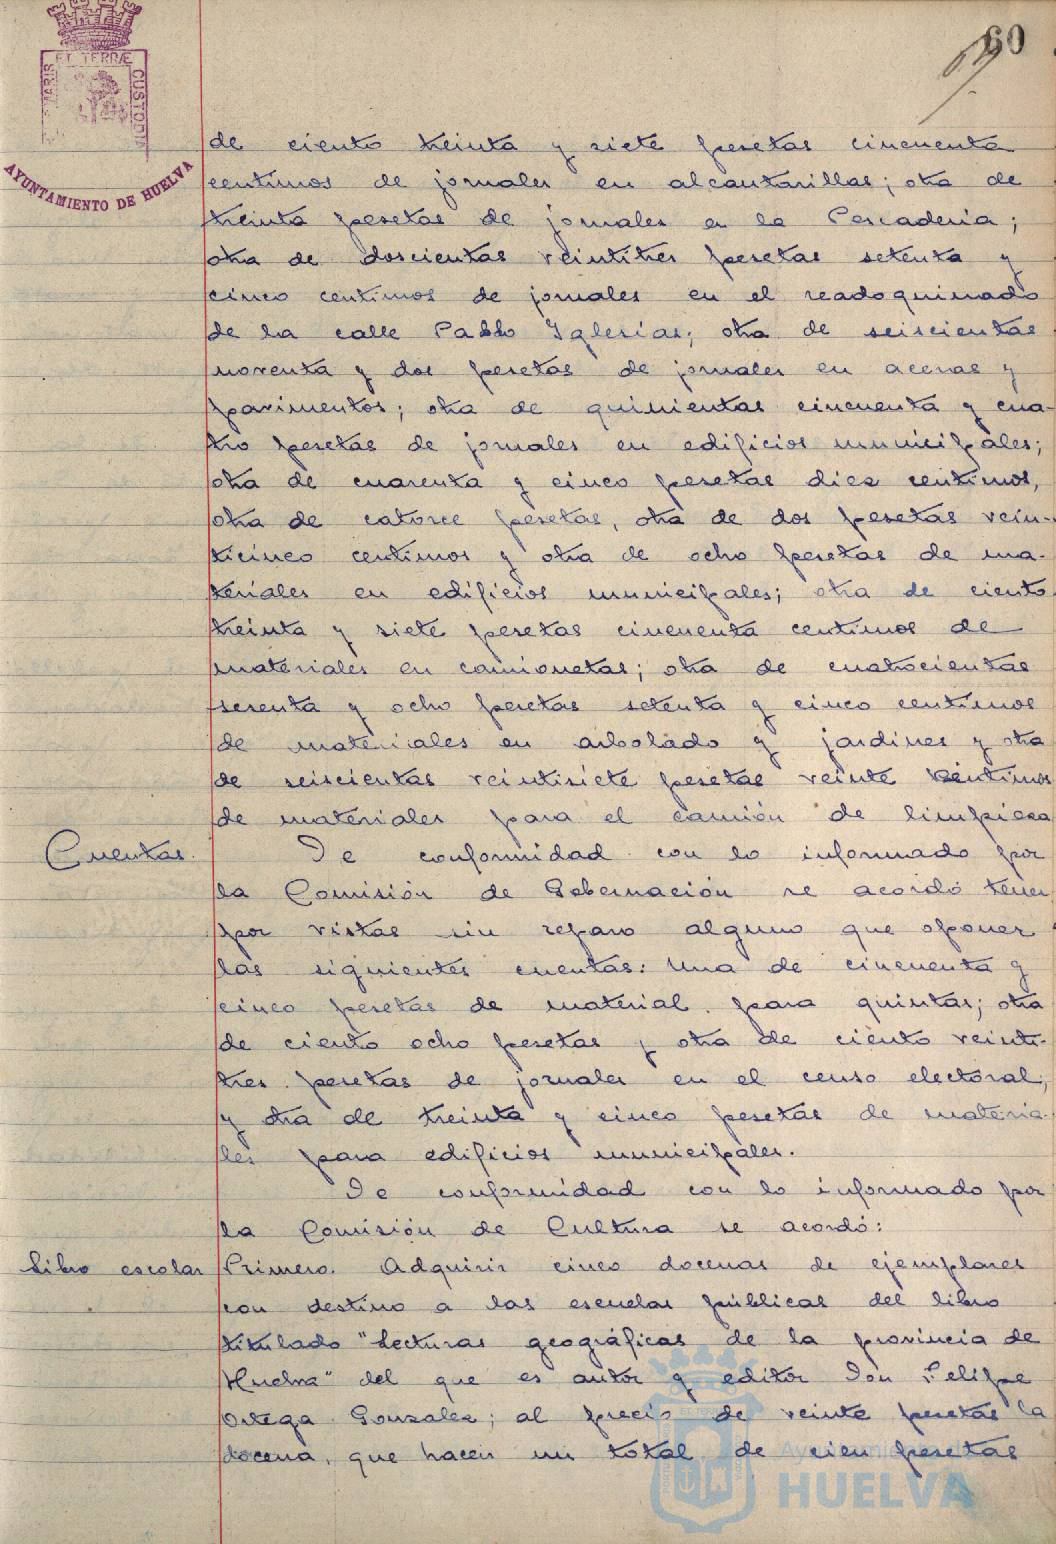 60
PORTUS MARIS ET TERRÆ CUSTODIA
AYUNTAMIENTO DE HUELVA
de ciento treinta y siete pesetas cincuenta
centimos de jornales en alcantarillas; otra de
treinta pesetas de jornales en la Pescaderia;
otra de doscientas veintitres pesetas setenta y
cinco centimos de jornales en el readoquinado
de la calle Pablo Iglesias; otra de seiscientas
noventa y dos pesetas de jornales en aceras y
pavimentos; otra de quinientas cincuenta y cua-
tro pesetas de jornales en edificios municipales;
otra de cuarenta y cinco pesetas diez centimos,
otra de catorce pesetas, otra de dos pesetas vein-
ticinco centimos y otra de ocho pesetas de ma-
teriales en edificios municipales; otra de ciento
treinta y siete pesetas cincuenta centimos de
materiales en camionetas; otra de cuatrocientas
sesenta y ocho pesetas setenta y cinco centimos
de materiales en arbolado y jardines y otra
de seiscientas veintisiete pesetas veinte centimos
de materiales para el camión de limpieza
Cuentas. De conformidad con lo informado por
la Comisión de Gobernación se acordó tener
por vistas sin reparo alguno que oponer
las siguientes cuentas: Una de cincuenta y
cinco pesetas de material para quintas; otra
de ciento ocho pesetas y otra de ciento veinti-
tres pesetas de jornales en el censo electoral;
y otra de treinta y cinco pesetas de materia-
les para edificios municipales.
De conformidad con lo informado por
la Comisión de Cultura se acordó:
Libro escolar Primero. Adquirir cinco docenas de ejemplares
con destino a las escuelas públicas del libro
titulado "Lecturas geográficas de la provincia de
Huelva" del que es autor y editor Don Felipe
Ortega Gonzalez; al precio de veinte pesetas la
docena, que hacen un total de cien pesetas
Ayuntamiento de
HUELVA